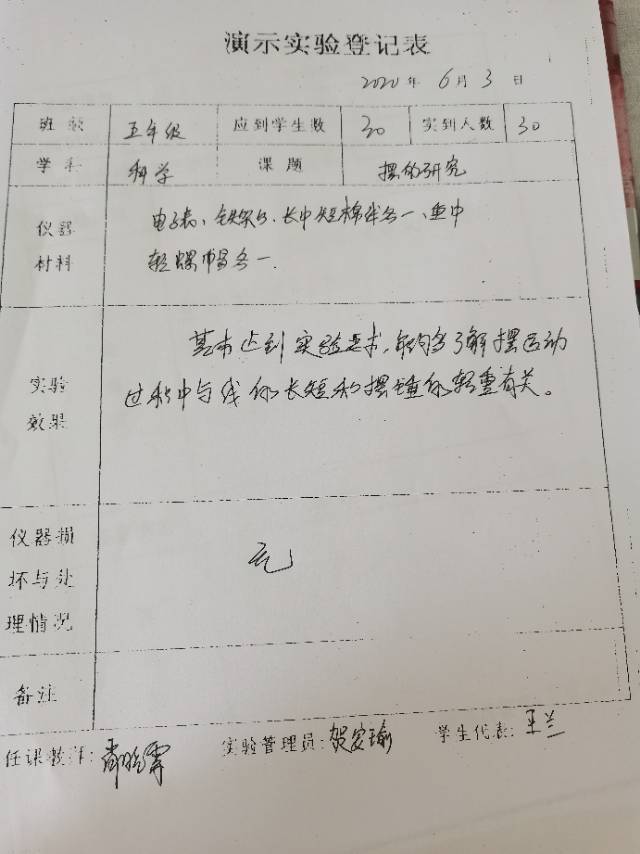 演示实验登记表
2020年 6月 3日
班级 五年级 应到学生数 30 实到人数 30
学科 科学 课题 摆的研究
仪器 电子表、铁架台、长中短棉线各一、重中
材料 轻螺帽各一
实验 基本达到实验要求,能够了解摆运动
效果 过程中与线的长短和摆锤的轻重有关。
仪器损
坏与处 无
理情况
备注
任课教师: 实验管理员:贺安瑜 学生代表:王兰